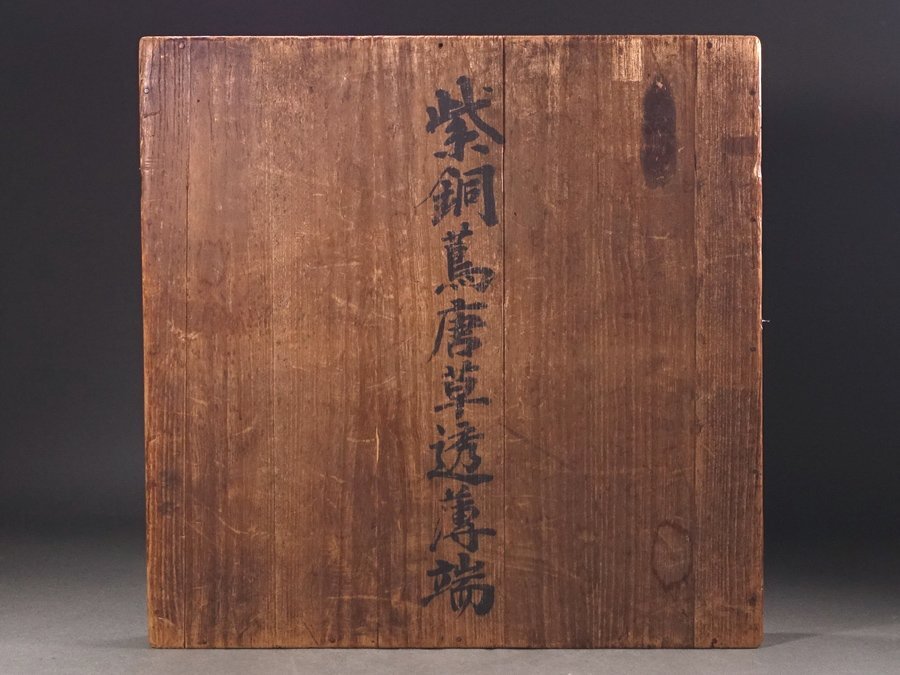 紫銅蔦唐草透薄端